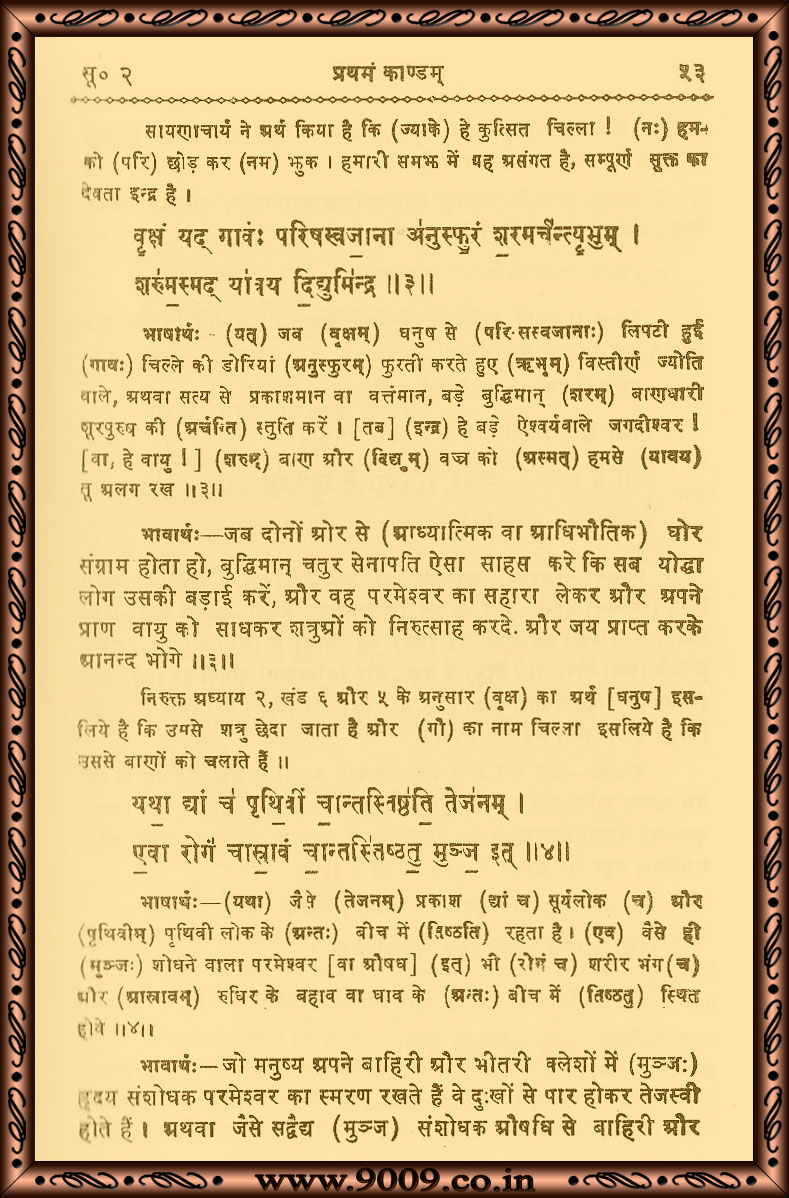 सू० २ प्रथमं काण्डम् ५३
सायणाचार्य ने अर्थ किया है कि (ज्याके) हे कुत्सित चिल्ला ! (नः) हम-
को (परि) छोड़ कर (नम) झुक । हमारी समझ में यह असंगत है, सम्पूर्ण सूक्त का
देवता इन्द्र है ।
वृक्षं यद् गावः॑ परिषस्वजा॒ना अ॑नुस्फु॒रं श॒रमर्च॑न्त्यृ॒भुम् ।
शरु॑म॒स्मद् या॑वय दि॒द्युमि॑न्द्र ॥३॥
भाषार्थः - (यत्) जब (वृक्षम्) धनुष से (परि-सस्वजानाः) लिपटी हुई
(गावः) चिल्ले की डोरियां (अनुस्फुरम्) फुरती करते हुए (ऋभुम्) विस्तीर्ण ज्योति
वाले, अथवा सत्य से प्रकाशमान वा वर्त्तमान, बड़े बुद्धिमान् (शरम्) बाणधारी
शूरपुरुष की (अर्चन्ति) स्तुति करें । [तब] (इन्द्र) हे बड़े ऐश्वर्यवाले जगदीश्वर !
[वा, हे वायु ! ] (शरुम्) बाण और (दिद्युम्) वज्र को (अस्मत्) हमसे (यावय)
तू अलग रख ॥३॥
भावार्थः—जब दोनों ओर से (आध्यात्मिक वा आधिभौतिक) घोर
संग्राम होता हो, बुद्धिमान् चतुर सेनापति ऐसा साहस करे कि सब योद्धा
लोग उसकी बड़ाई करें, और वह परमेश्वर का सहारा लेकर और अपने
प्राण वायु को साधकर शत्रुओं को निरुत्साह करदे. और जय प्राप्त करके
आनन्द भोगे ॥३॥
निरुक्त अध्याय २, खंड ६ और ५ के अनुसार (वृक्ष) का अर्थ [धनुष] इस-
लिये है कि उससे शत्रु छेदा जाता है और (गौ) का नाम चिल्ला इसलिये है कि
उससे बाणों को चलाते हैं ॥
यथा॒ द्यां च॑ पृथि॒वीं चा॒न्तस्तिष्ठ॑ति॒ तेज॑नम् ।
ए॒वा रोगं॑ चास्रा॒वं चा॒न्तस्ति॑ष्ठतु॒ मुञ्ज॒ इत् ॥४॥
भाषार्थः—(यथा) जैसे (तेजनम्) प्रकाश (द्यां च) सूर्यलोक (च) और
(पृथिवीम्) पृथिवी लोक के (अन्तः) बीच में (तिष्ठति) रहता है । (एव) वैसे ही
(मुञ्जः) शोधने वाला परमेश्वर [वा औषध] (इत्) भी (रोगं च) शरीर भंग(च)
और (आस्रावम्) रुधिर के बहाव वा घाव के (अन्तः) बीच में (तिष्ठतु) स्थित
होवे ॥४॥
भावार्थः—जो मनुष्य अपने बाहिरी और भीतरी क्लेशों में (मुञ्जः)
हृदय संशोधक परमेश्वर का स्मरण रखते हैं वे दुःखों से पार होकर तेजस्वी
होते हैं । अथवा जैसे सद्वैद्य (मुञ्ज) संशोधक औषधि से बाहिरी और
www.9009.co.in